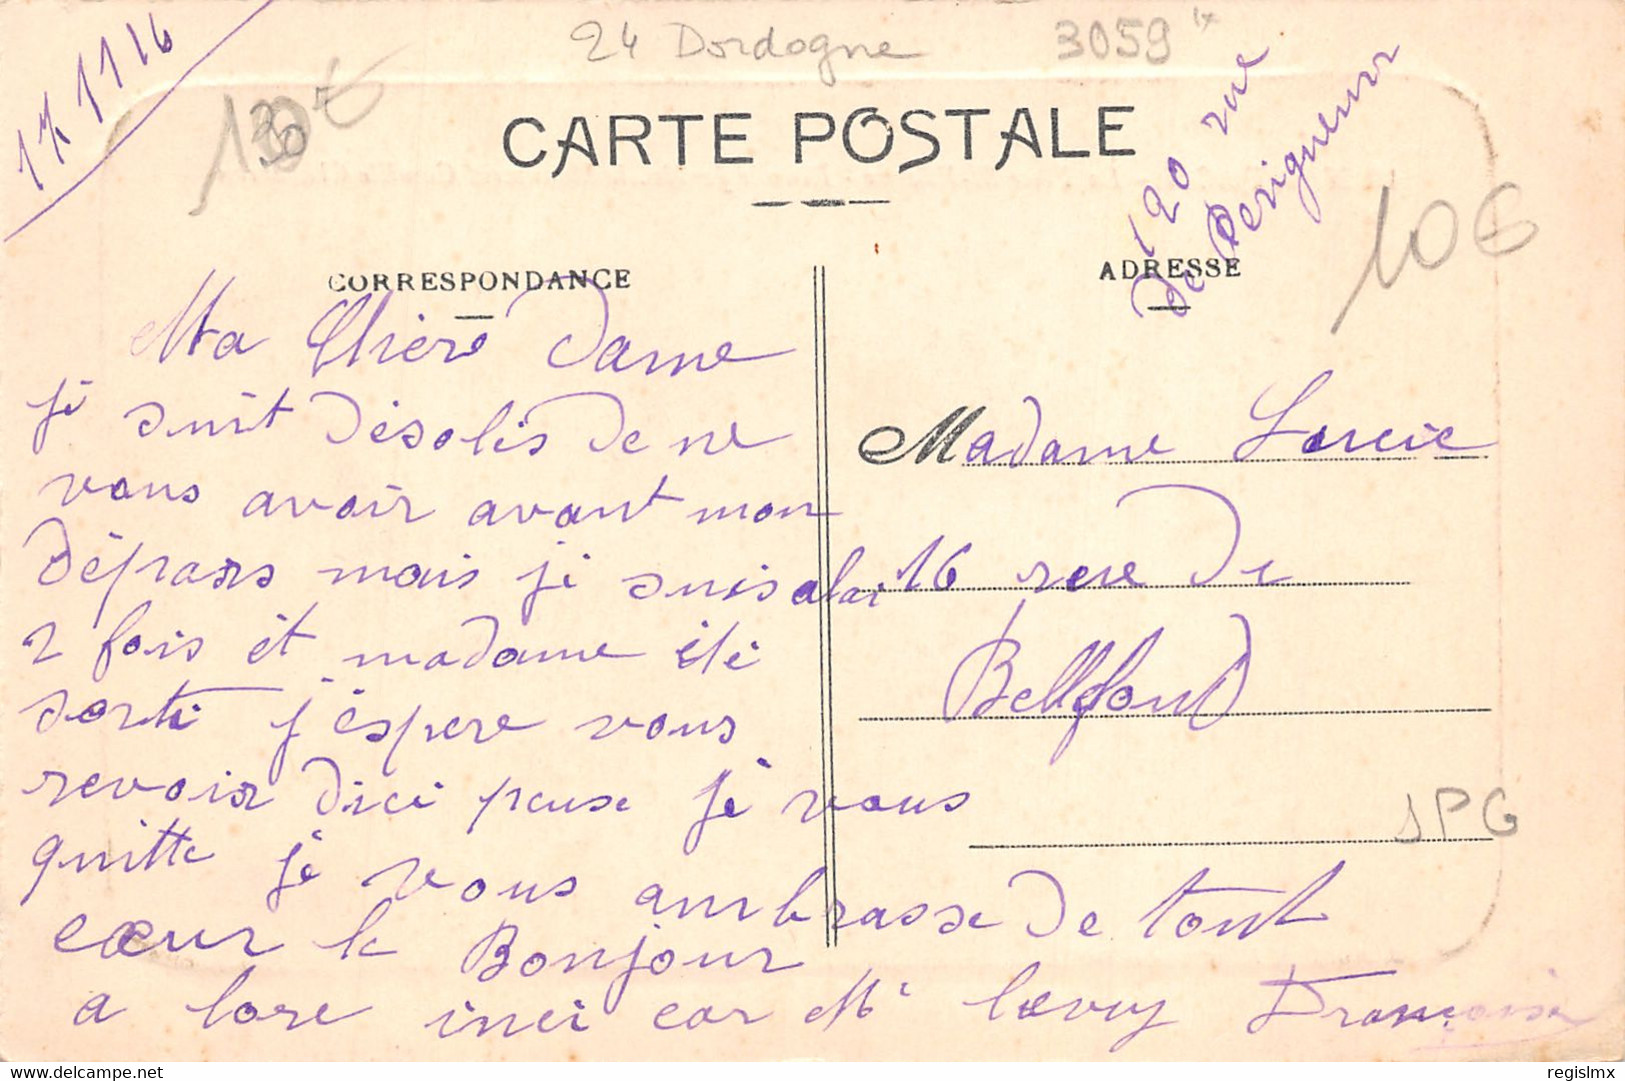 17 11 16
24 Dordogne
3059
130€
120 rue
de Perigneux
10€
CARTE POSTALE
CORRESPONDANCE
ADRESSE
Ma Chère Dame
je suit désolés de ne
vous avoir avant mon
dépars mais je suis alai
2 fois èt madame été
sorti j'éspere vous
revoir dici peuse je vous
quitte je vous ambrasse de tout
cœur le Bonjour
a lore inci car Mr Françoise
Madame Lucie
16 rue de
Bellfond
JPG
delcampe.net
regislmx